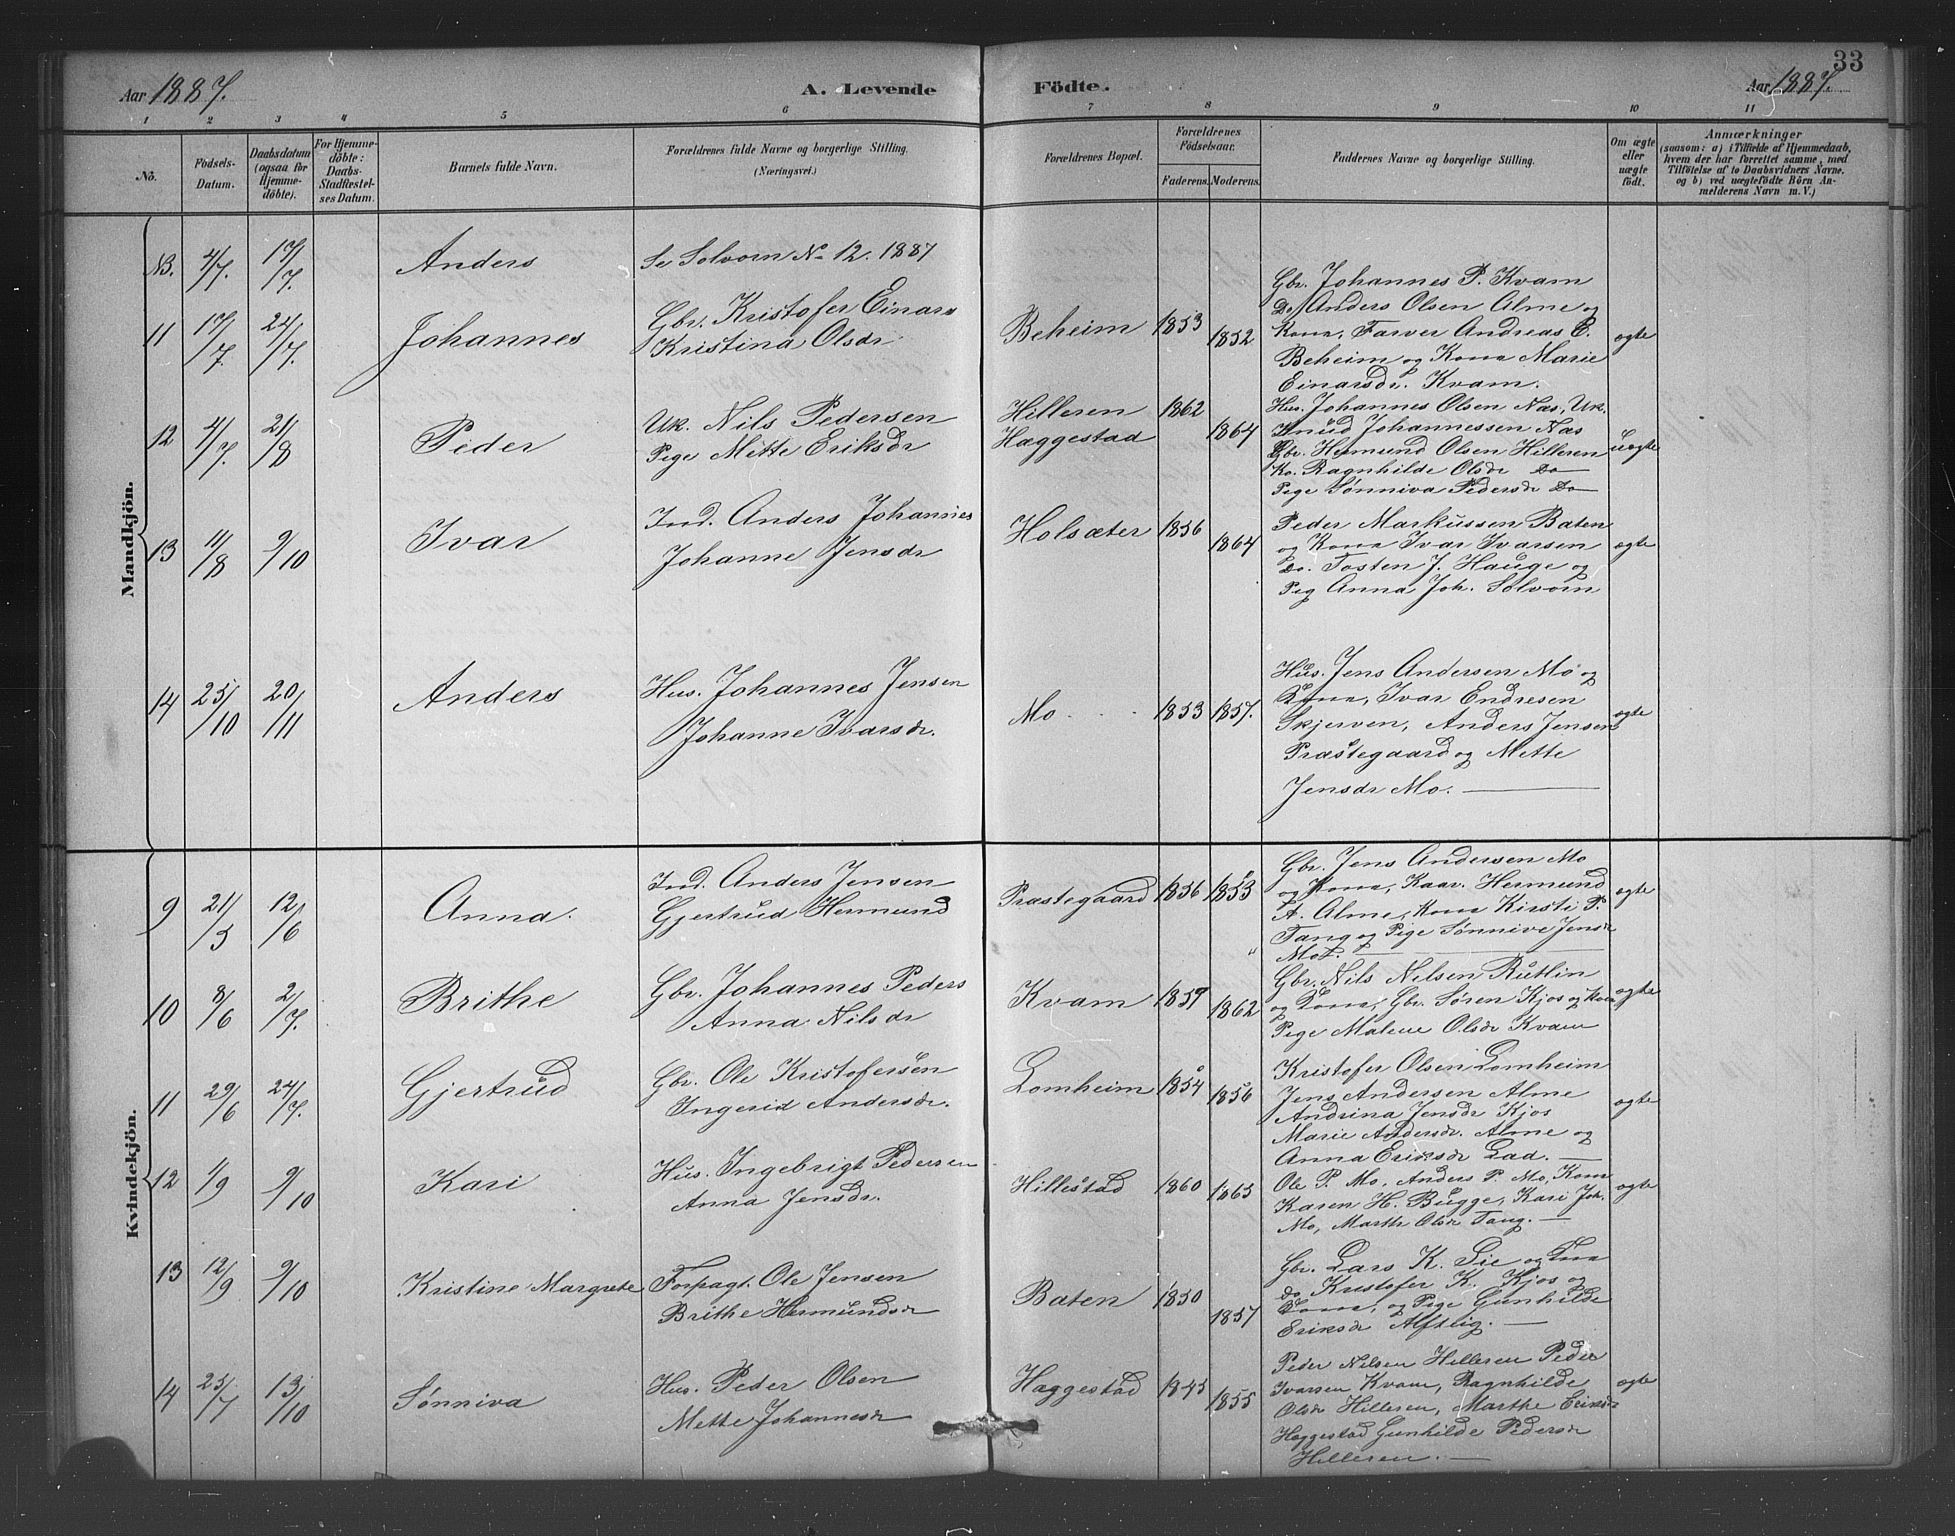 33
Aar 1887. A. Levende Födte. Aar 1887.
1 2 3 4 5 6 7 8 9 10 11
No.
Födsels-Datum.
Daabsdatum (ogsaa for Hjemme-döbte).
For Hjemme-döbte: Daabs-Stadfæstel-ses Datum.
Barnets fulde Navn.
Forældrenes fulde Navne og borgerlige Stilling.
(Næringsvei.)
Forældrenes Bopæl.
Forældrenes Födselsaar.
Faderens. Moderens.
Faddernes Navne og borgerlige Stilling.
Om ægte eller uægte født.
Anmærkninger
(saasom: a) i Tilfælde af Hjemmedaab,
hvem der har forrettet samme, med
Tilföielse af to Daabsvidners Navne.
og b) ved uægtefödte Börn An-
melderens Navn m. V.)
Mandkjön.
NB. 4/7. 17/7. Anders Se Solvorn No 12. 1887
11 17/7. 24/7. Johannes
Gbr. Kristofer Einars
Kristina Olsdr.
Beheim 1853 1852
Gbr. Johannes P. Kvam
Do/ Anders Olsen Alme og
Kona, Farver Andreas E.
Beheim og Kona Marie
Einarsdr. Kvam.
ægte
12 4/7. 21/8 Peder
Uk. Nils Pedersen
Pige Mette Eriksdr
Hilleren
Haggestad
1862 1864
Hus. Johannes Olsen Næs, Uk.
Knud Johannessen Næs
Gbr. Hermund Olsen Hilleren
Ko. Ragnhilde Olsdr Do
Pige Sønniva Pedersdr Do
uægte
13 11/8 9/10 Ivar
Ind. Anders Johannes
Johanne Jensdr
Holsæter 1856 1864
Peder Markussen Baten
og Kona Ivar Ivarsen
Do. Tosten J. Hauge og
Pig Anna Joh. Solvorn
ægte
14 25/10 20/11 Anders
Hus. Johannes Jensen
Johanne Ivarsdr.
Mo 1853 1857.
Hus. Jens Andersen Mo og
Kona, Ivar Endresen
Skjerven, Anders Jensen
Præstegaard og Mette
Jensdr Mo.
ægte
Kvindekjön.
9 21/5 12/6 Anna.
Ind. Anders Jensen
Gjertrud Hermund
Præstegaard 1856 1853
Gbr. Jens Andersen Mo
og Kona, Kaar. Hermund
A. Alme, Kona Kirsti P.
Tang og Pige Sønnive Jensdr
Mo.
ægte
10 8/6 2/7. Brithe
Gbr. Johannes Peders
Anna Nilsdr
Kvam 1859 1862
Gbr. Nils Nilsen Rutlin
og Kona, Gbr. Søren Kjos og Kona
Pige Malene Olsdr Kvam
ægte
11 29/6 24/7. Gjertrud
Gbr. Ole Kristofersen
Ingerid Andersdr.
Lomheim 1854 1856
Kristofer Olsen Lomheim
Jens Andersen Alme
Andrina Jensdr Kjos
Marie Andersdr. Alme og
Anna Eriksdr Lad.
ægte
12 1/9 9/10 Kari
Hus. Ingebrigt Pedersen
Anna Jensdr.
Hillestad 1860 1863
Ole P. Mo, Anders P. Mo, Kona
Karen H. Bugge, Kari Joh.
Mo, Marthe Olsdr Tang.
ægte
13 12/9 9/10 Kristine Margrete
Forpagt. Ole Jensen
Brithe Hermundsdr
Baten 1850 1857
Gbr. Lars K. Lie og Kona
Do Kristofer K. Kjos og
Kona, og Pige Gunhilde
Eriksdr
ægte
14 25/7 13/10 Sønniva
Hus. Peder Olsen
Mette Johannesdr
Haggestad 1843 1855
Peder Nilsen Hilleren Peder
Ivarsen Kvam, Ragnhilde
Olsdr Hilleren, Marthe Eriksdr
Haggestad Gunhilde Pedersdr
Hilleren.
ægte